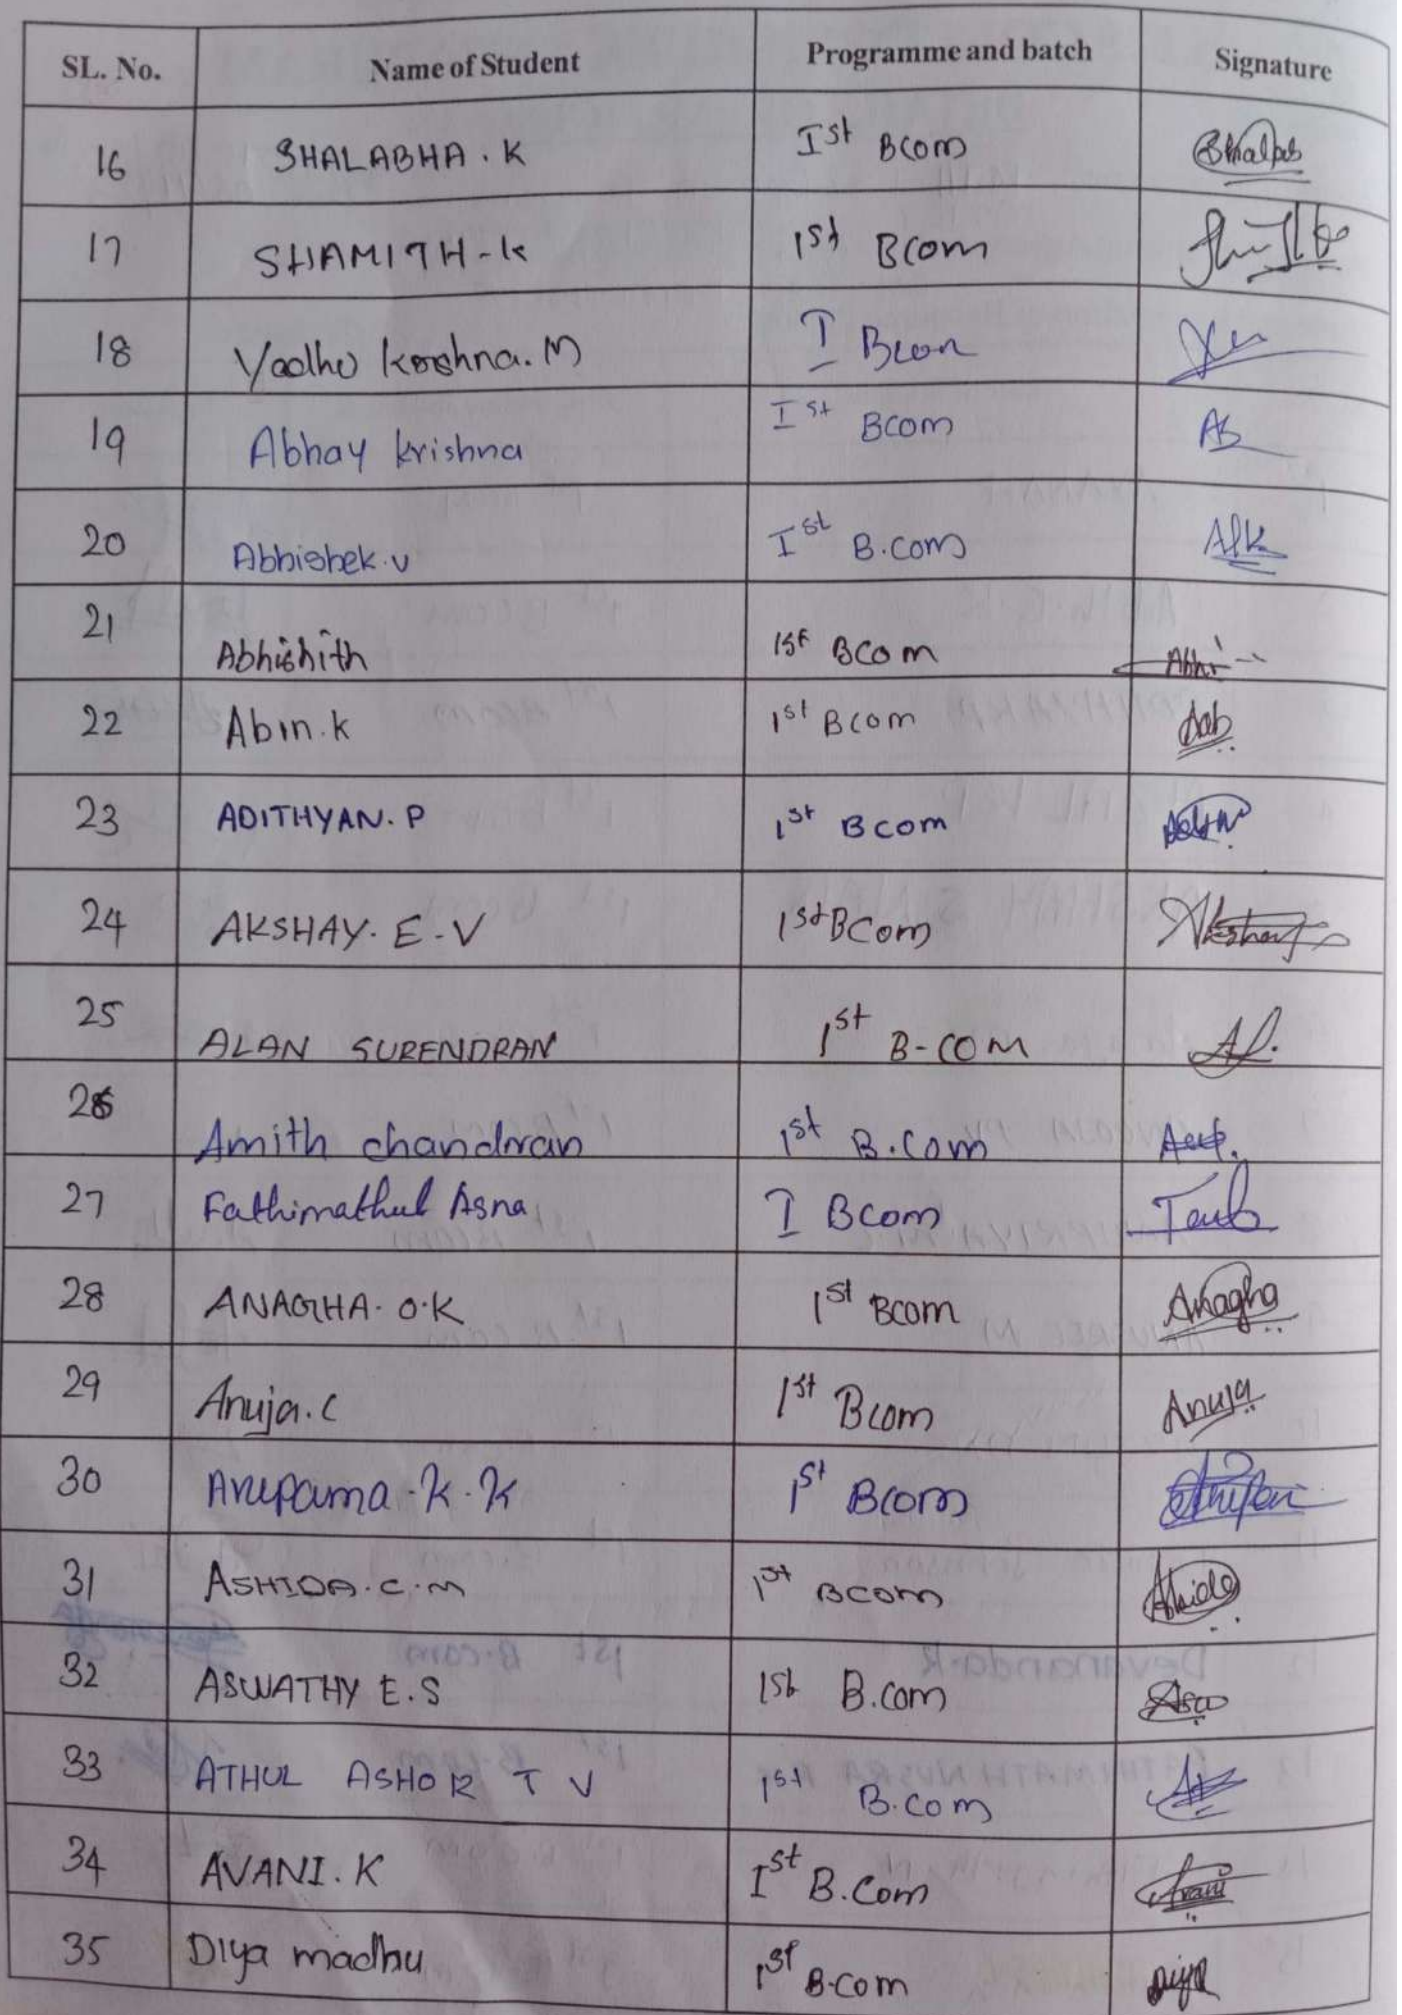 SL. No. Name of Student Programme and batch Signature
16 SHALABHA. K Ist BCom
17 SHAMITH-K 1st BCom
18 Yadhu Krishna. M I Bcom
19 Abhay krishna Ist BCom
20 Abhishek. v Ist B.com
21 Abhishith 1st BCom Abhi
22 Abin. k 1st BCom
23 ADITHYAN. P 1st Bcom
24 AKSHAY. E. V 1st BCom Akshay
25 ALAN SURENDRAN 1st B-COM
26 Amith chandran 1st B.Com
27 Fathimathul Asna I BCom
28 ANAGHA. O.K 1st Bcom Anagha
29 Anuja. C 1st Bcom Anuja
30 Anupama. K. K 1st BCom
31 ASHIDA. C. M 1st BCom
32 ASWATHY E. S 1st B.Com Asw
33 ATHUL ASHOK T V 1st B.Com
34 AVANI. K Ist B.Com Avani
35 Diya madhu 1st B.com Diya